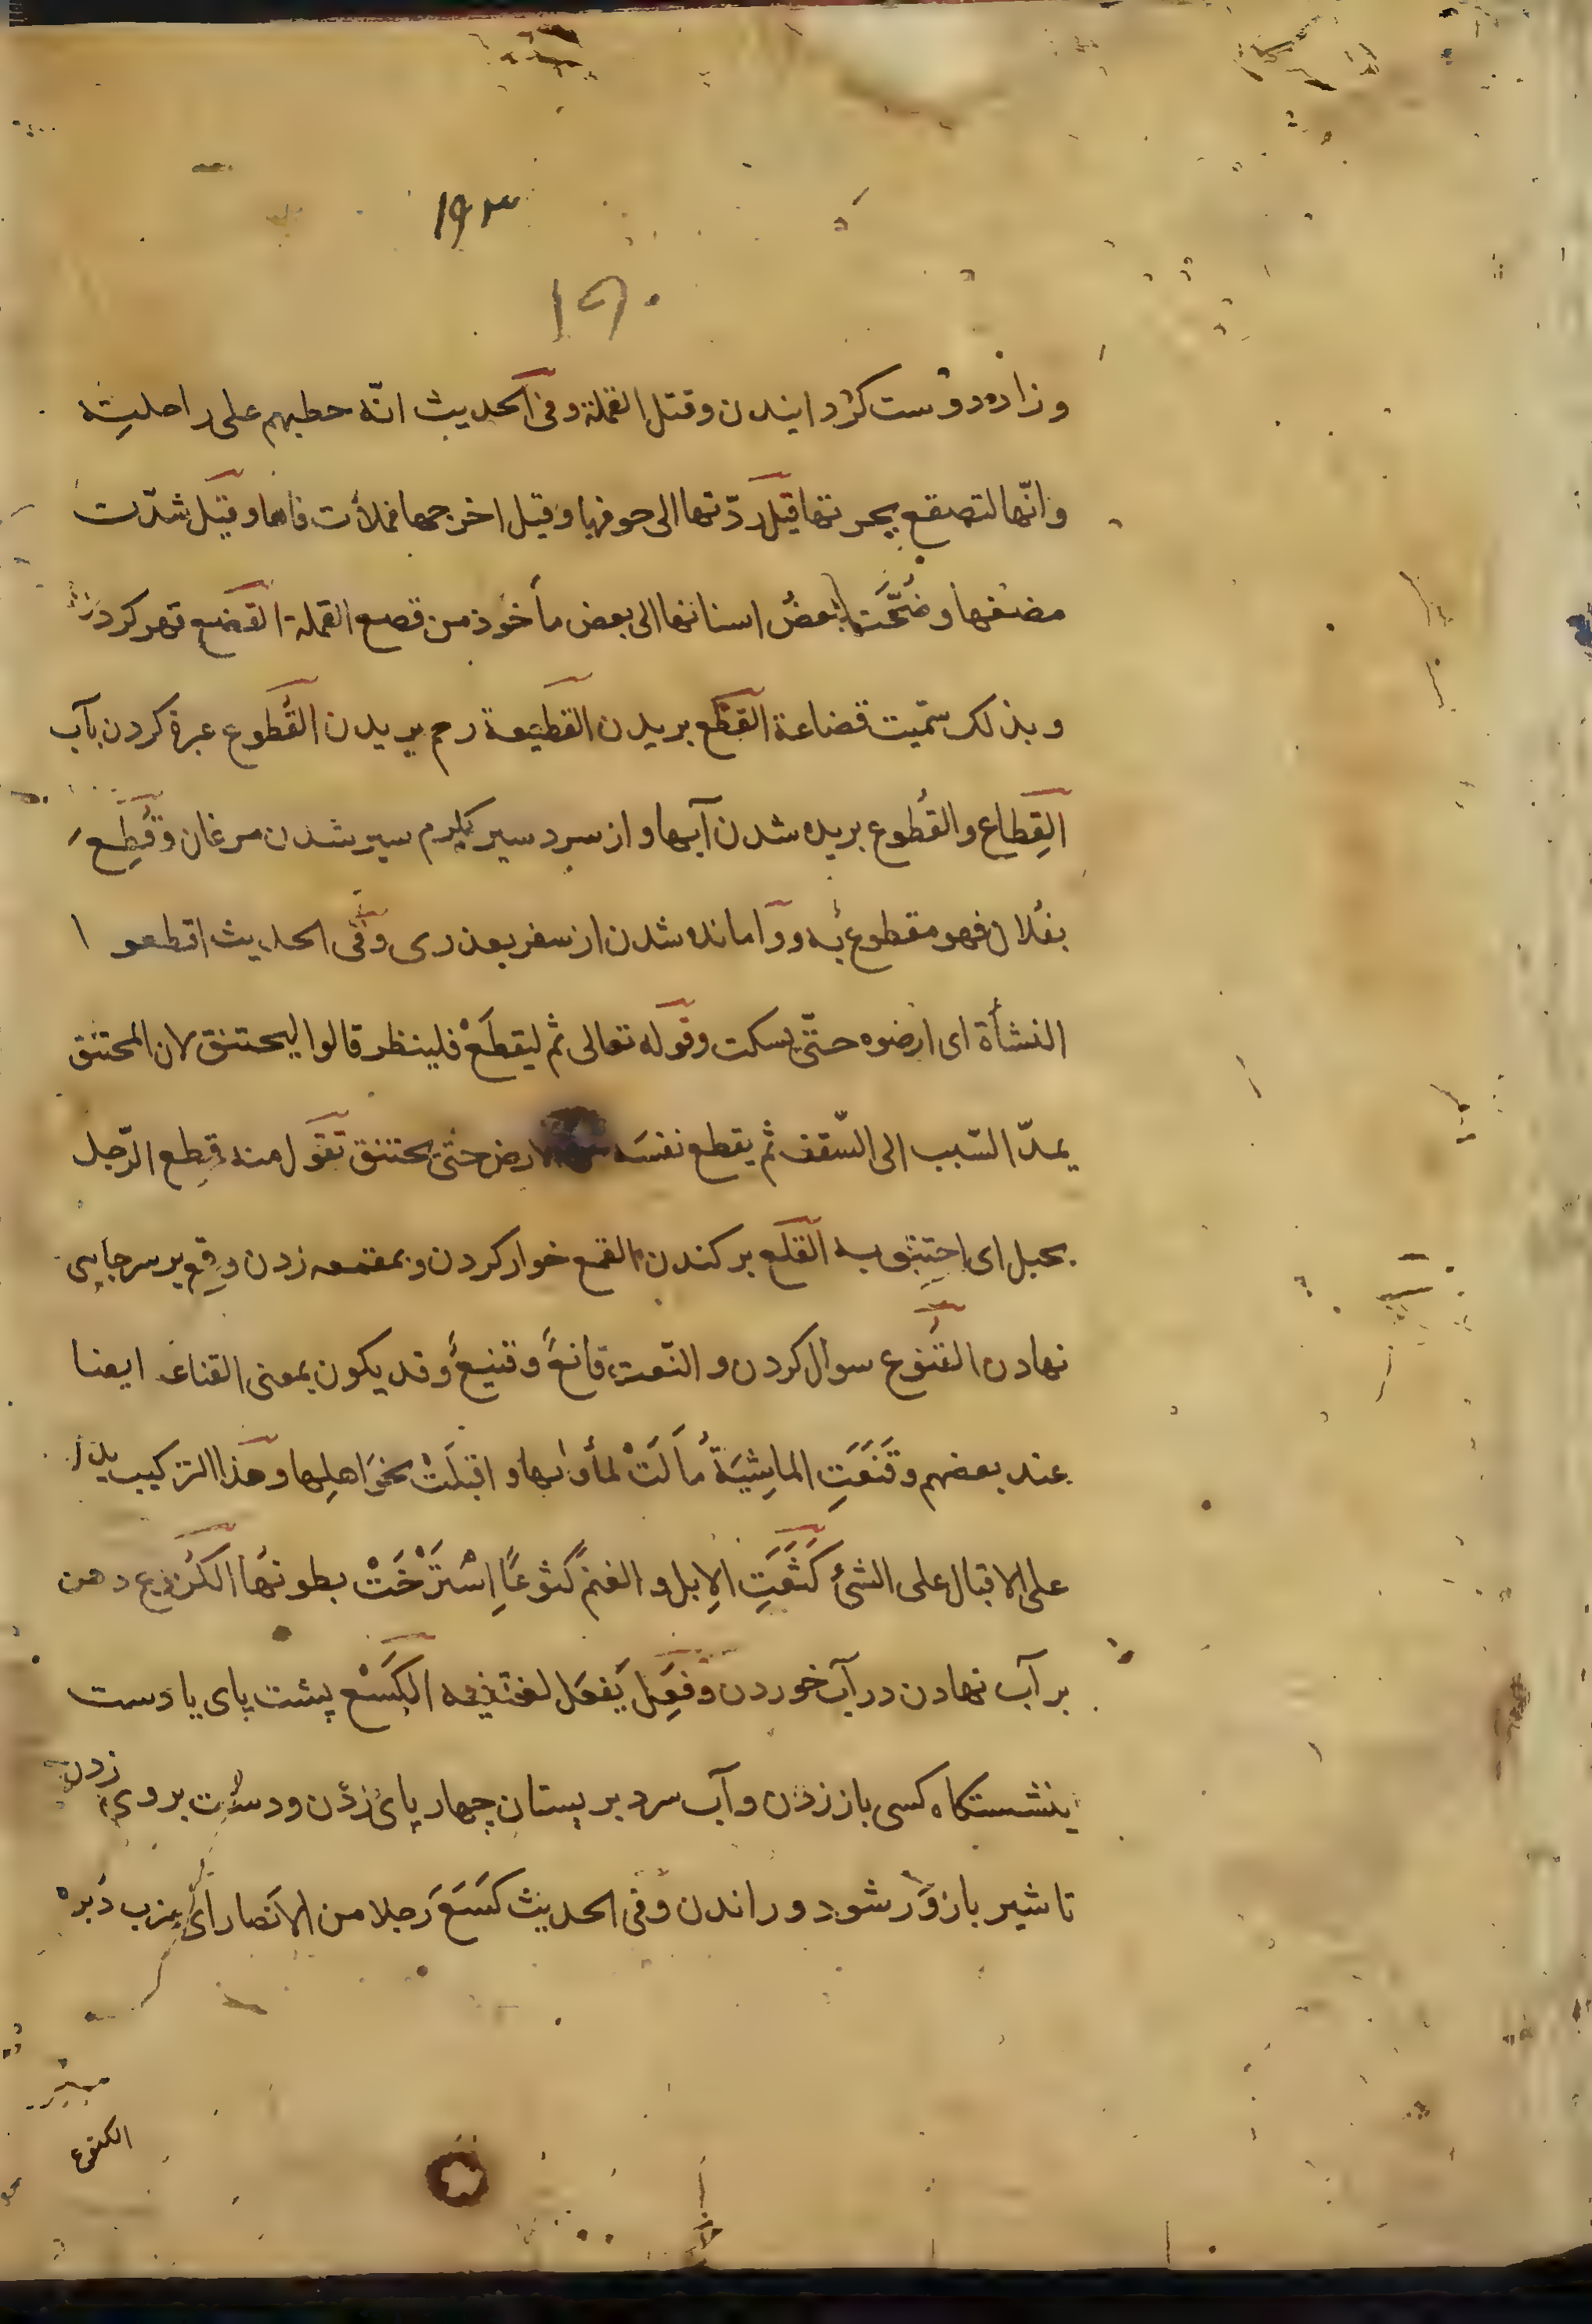 ۱۹۳
۱۹۰
و زاده دوست کرد ایندن و قتل القملة و فی الحدیث انّه خطبهم علی راحلته
و انّها لتصقع بجرتها قیل ردّتها الی جوفها و قیل اخرجها فملأت فاها و قیل شدّت
مضغها و ضُحَّت بعضُ اسنانها الی بعض مأخوذ من قصع القملة القضع قهر کردن
و بذلک سمّیت قضاعة القطع بریدن القطیعة رحم بریدن القُطوع عبره کردن بآب
القِطاع و القُطوع بریده شدن آبها و از سردسیر بگرم سیر شدن مرغان و قُطِعَ
بفُلان فهو مقطوع به و وامانده شدن از سفر بعذری و فی الحدیث اقطعوا
النشأة ای ارضوه حتّی یسکت و قوله تعالی ثم لیقطَعْ فلینظر قالوا لیختنق لان المختنق
یمدّ السّبب الی السّقف ثم یقطع نفسَه الارض حتّی یختنق تقول منه قطع الرّجل
بحبل ای اختنق به القلع برکندن القمع خوار کردن و بمقمعه زدن و قِمع بر سر جایی
نهادن القُنوع سوال کردن و النّعت قانعٌ و قنیعٌ و قد یکون بمعنی القناعه ایضا
عند بعضهم و قَنَعَتِ الماشِیَةُ مَالَتْ لمأواها و اقبَلَتْ نحوَ اهلِها و هذا الترکیب یدل
علی الاقبال علی الشئ کَثَعَتِ الاِبل و الغنم کثوعًا اِسْتَرْخَتْ بطونُها الکُروع دهن
بر آب نهادن در آب خوردن و فعِل یَفعَل لغة فیه الکَسْع پشت پای یا دست
بنشستکاه کسی باز زدن و آب سرد بر پستان چهارپای زدن و دست بروی زدن
تا شیر باز وَر شود و راندن و فی الحدیث کَسَعَ رجلا من الانصار ای ضرب دبره
الکنوع